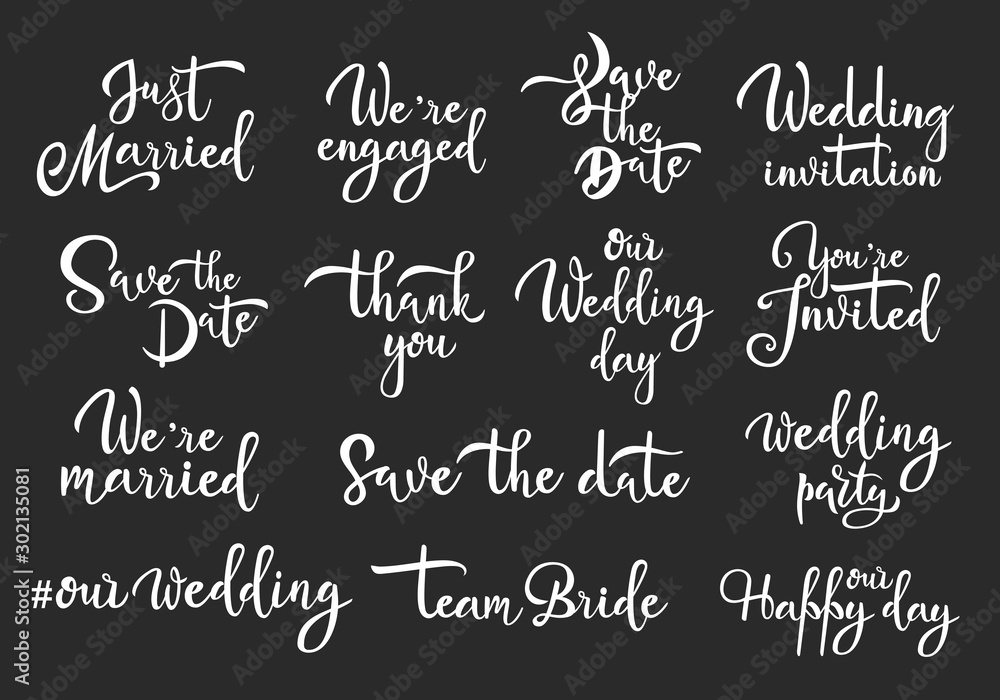 Just
Married
We're
engaged
Save
the
Date
Wedding
invitation
Save the
Date
thank
you
our
Wedding
day
You're
Invited
We're
married
Save the date
wedding
party
#our wedding
Team Bride
our
Happy day
Adobe Stock | #302135081